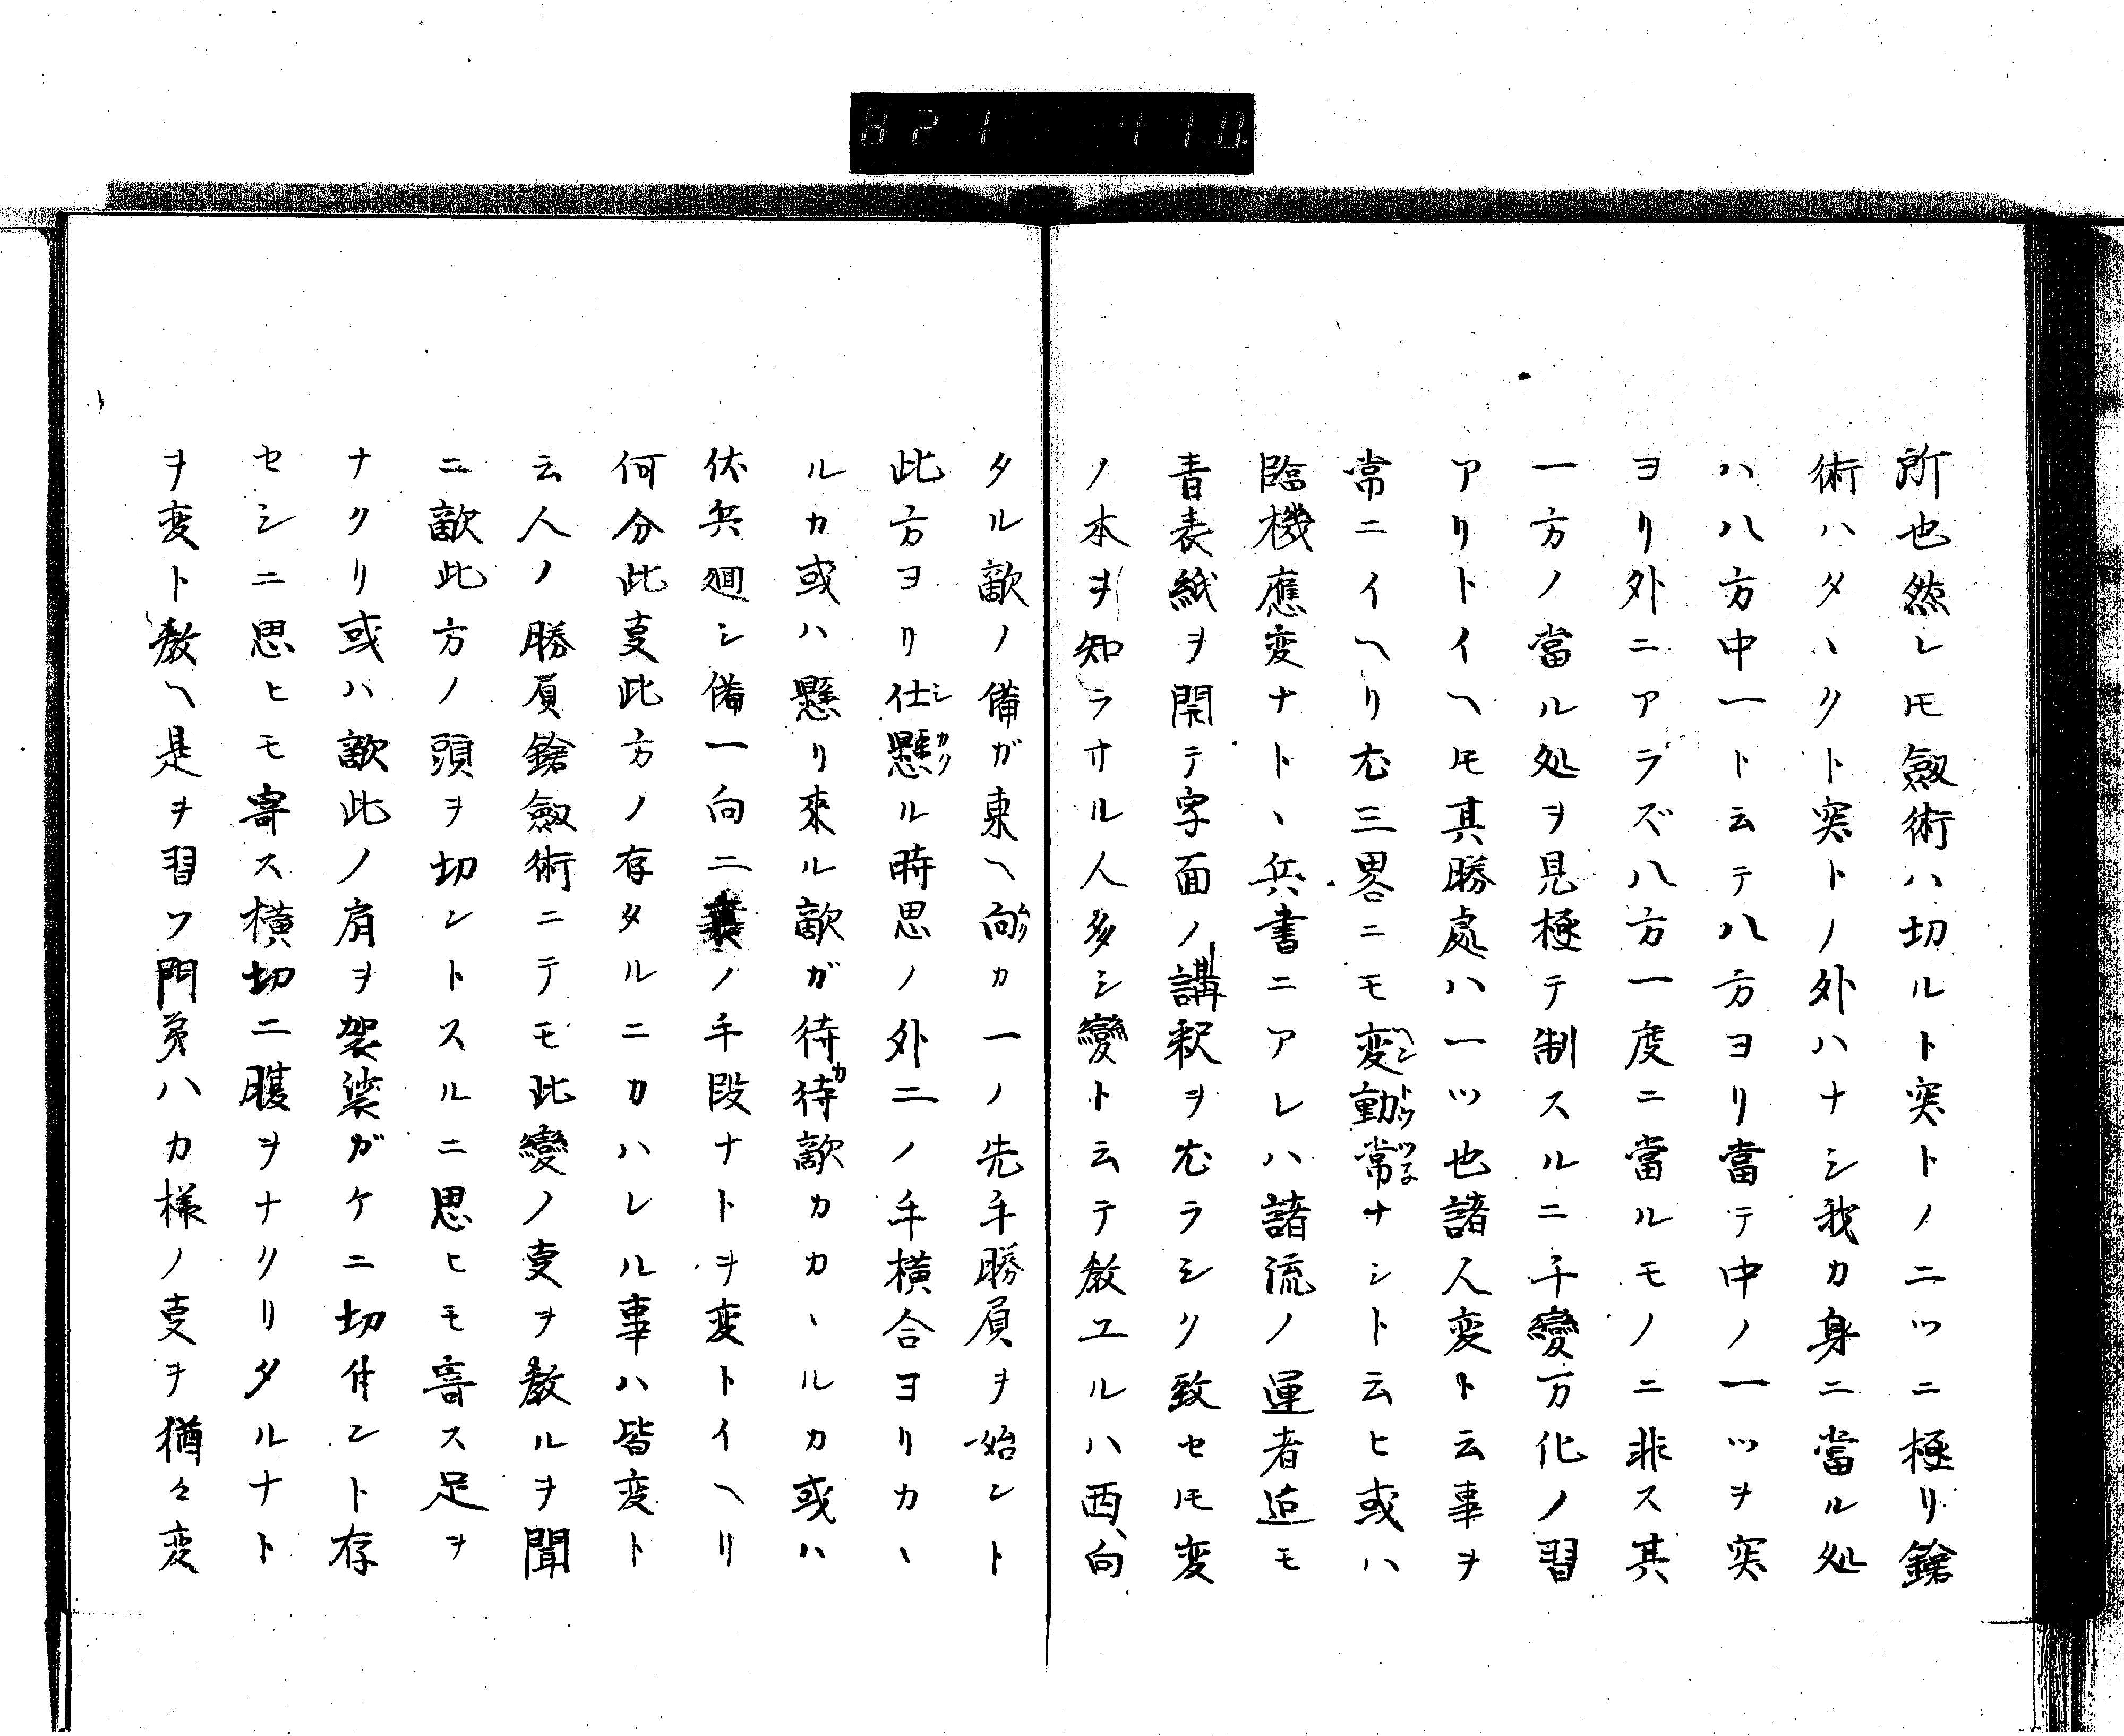 821 410.
所也然レ𪜈劔術ハ切ルト突トノ二ツニ極リ鎗
術ハタヽクト突トノ外ハナシ我カ身ニ當ル処
ハ八方中一ト云テ八方ヨリ當テ中ノ一ツヲ突
ヨリ外ニアラズ八方一度ニ當ルモノニ非ス其
一方ノ當ル処ヲ見極テ制スルニ千變万化ノ習
アリトイヘ𪜈其勝處ハ一ツ也諸人変ト云事ヲ
常ニイヘリ尤三畧ニモ変動常ナシト云ヒ或ハ
臨機應変ナトヽ兵書ニアレハ諸流ノ運者迠モ
青表紙ヲ開テ字面ノ講釈ヲ尤ラシク致セ𪜈変
ノ本ヲ知ラサル人多シ變ト云テ教ユルハ西向
タル敵ノ備ガ東ヘ向カ一ノ先手勝負ヲ始ント
此方ヨリ仕懸ル時思ノ外二ノ手横合ヨリカヽ
ルカ或ハ懸リ來ル敵ガ待カ待敵カカヽルカ或ハ
伏兵廻シ備一向二裏ノ手段ナトヲ変トイヘリ
何分此㕝此方ノ存タルニカハレル事ハ皆変ト
云人ノ勝負鎗劔術ニテモ此變ノ㕝ヲ教ルヲ聞
ニ敵此方ノ頭ヲ切ントスルニ思ヒモ寄ス足ヲ
ナクリ或ハ敵此ノ肩ヲ袈裟ガケニ切付ント存
セシニ思ヒモ寄ス横切ニ腹ヲナクリタルナト
ヲ変ト教ヘ是ヲ習フ門弟ハカ様ノ㕝ヲ猶々変